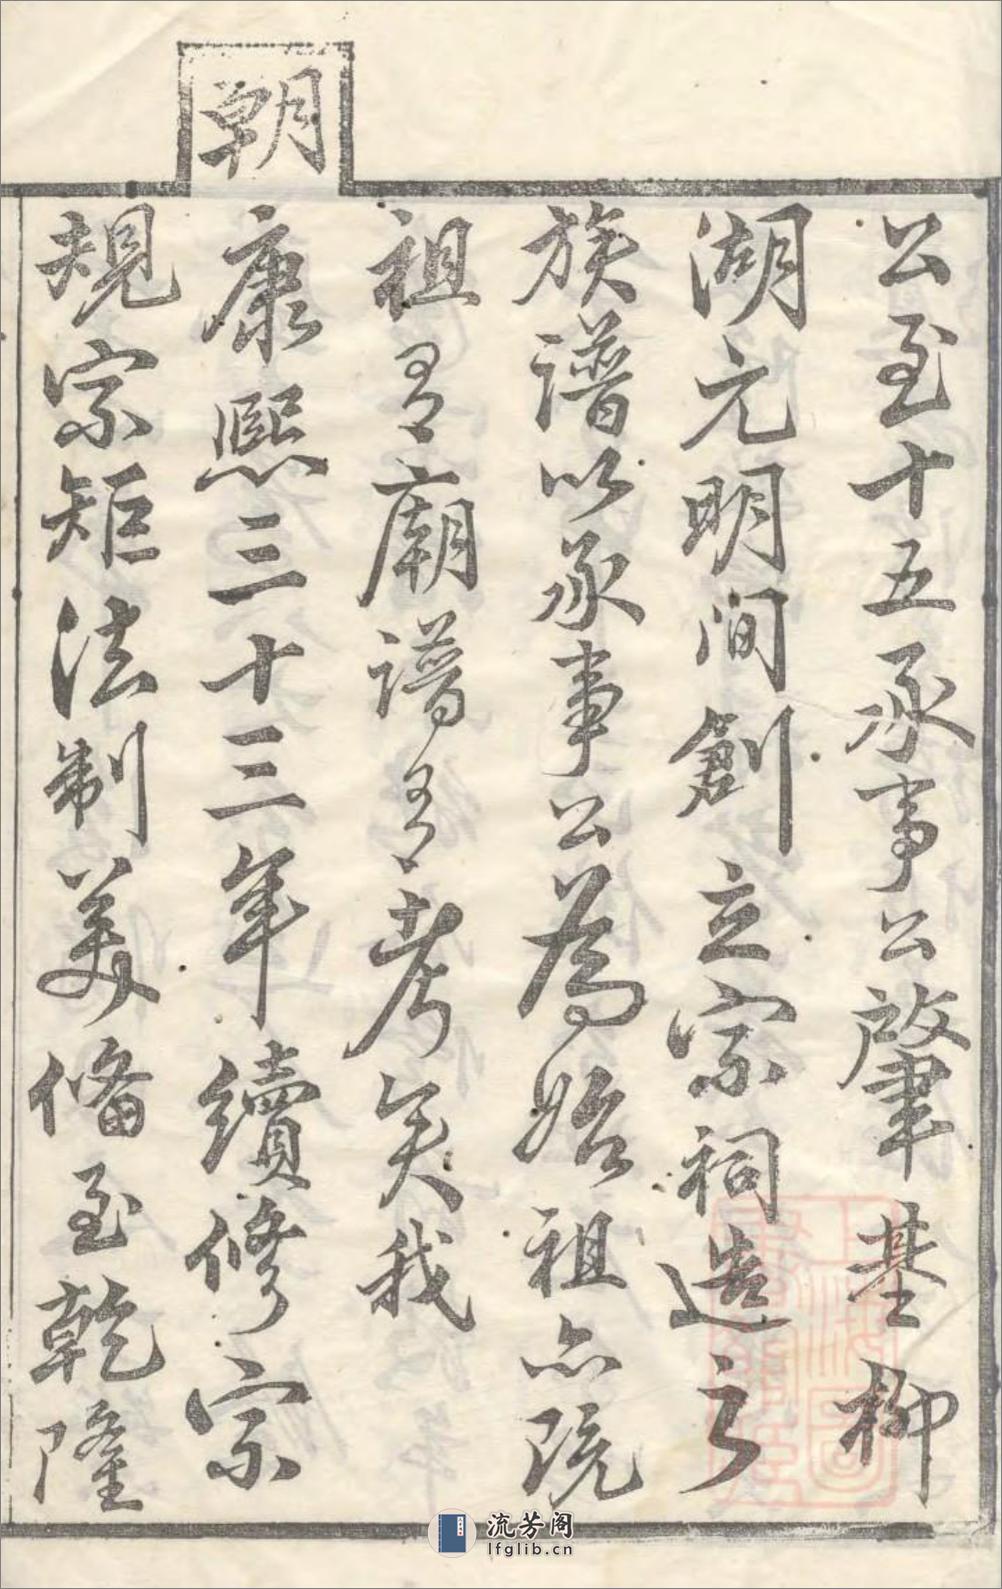 公至十五承事公肇基柳
湖元明間創立宗祠造立
族譜以承事公為始祖亦既
祖有廟譜有考矣我
朝
康熙三十三年續修宗
規宗矩法制美備至乾隆
流芳阁
lfglib.cn